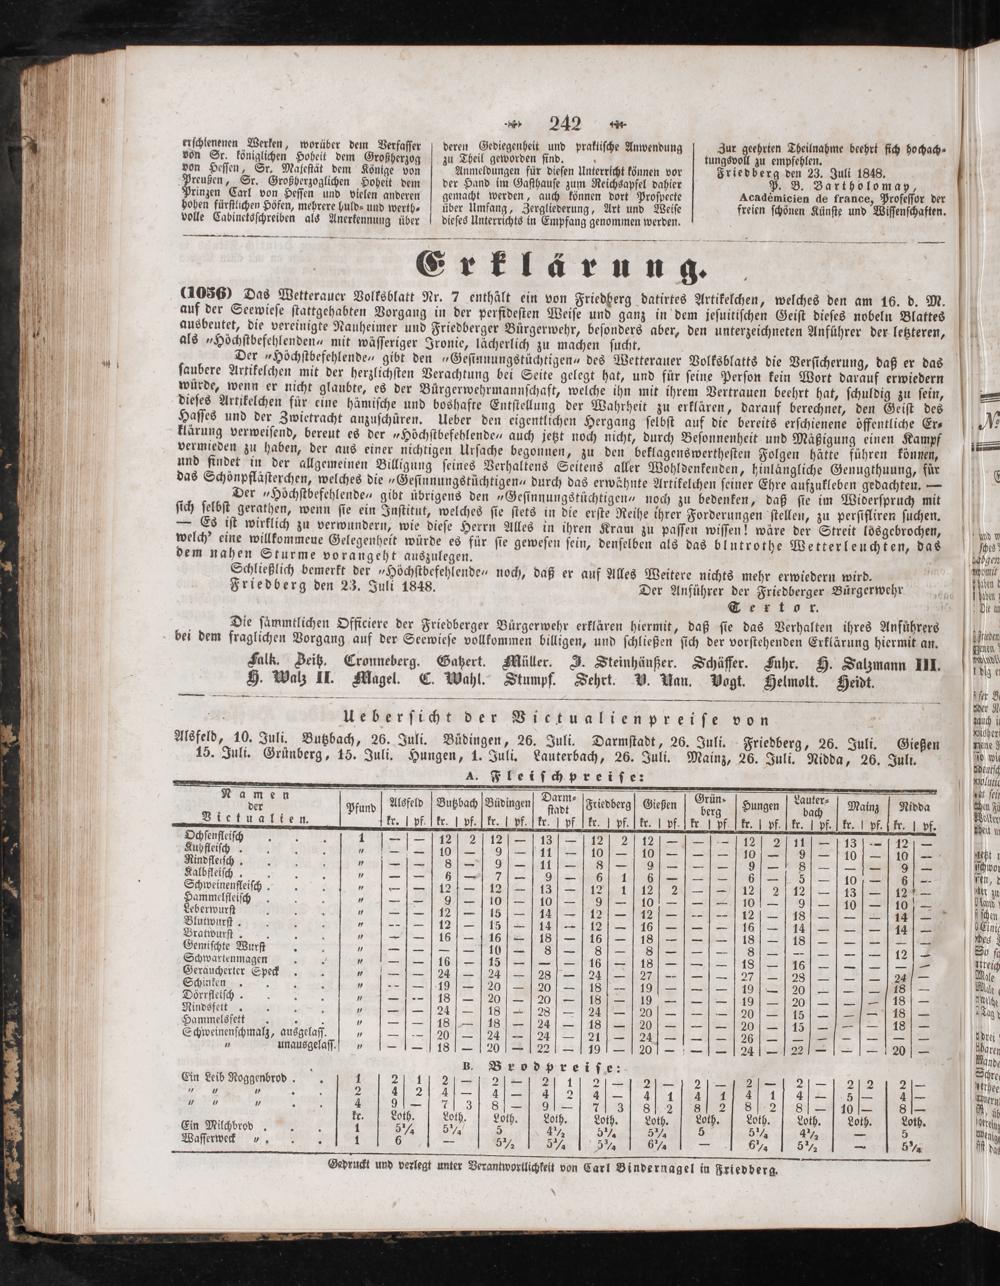 242
erschienenen Werken, worüber dem Verfasser
von Sr. königlichen Hoheit dem Großherzog
von Hessen, Sr. Majestät dem Könige von
Preußen, Sr. Großherzoglichen Hoheit dem
Prinzen Carl von Hessen und vielen anderen
hohen fürstlichen Höfen, mehrere huld- und werth-
volle Cabinetsschreiben als Anerkennung über
deren Gediegenheit und praktische Anwendung
zu Theil geworden sind.
Anmeldungen für diesen Unterricht können vor
der Hand im Gasthause zum Reichsapfel dahier
gemacht werden, auch können dort Prospecte
über Umfang, Zergliederung, Art und Weise
dieses Unterrichts in Empfang genommen werden.
Zur geehrten Theilnahme beehrt sich hochach-
tungsvoll zu empfehlen.
Friedberg den 23. Juli 1848.
P. B. Bartholomay,
Académicien de france, Professor der
freien schönen Künste und Wissenschaften.
Erklärung.
(1056) Das Wetterauer Volksblatt Nr. 7 enthält ein von Friedberg datirtes Artikelchen, welches den am 16. d. M.
auf der Seewiese stattgehabten Vorgang in der perfidesten Weise und ganz in dem jesuitischen Geist dieses nobeln Blattes
ausbeutet, die vereinigte Nauheimer und Friedberger Bürgerwehr, besonders aber, den unterzeichneten Anführer der letzteren,
als „Höchstbefehlenden“ mit wässeriger Ironie, lächerlich zu machen sucht.
Der „Höchstbefehlende“ gibt den „Gesinnungstüchtigen“ des Wetterauer Volksblatts die Versicherung, daß er das
saubere Artikelchen mit der herzlichsten Verachtung bei Seite gelegt hat, und für seine Person kein Wort darauf erwiedern
würde, wenn er nicht glaubte, es der Bürgerwehrmannschaft, welche ihn mit ihrem Vertrauen beehrt hat, schuldig zu sein,
dieses Artikelchen für eine hämische und boshafte Entstellung der Wahrheit zu erklären, darauf berechnet, den Geist des
Hasses und der Zwietracht anzuschüren. Ueber den eigentlichen Hergang selbst auf die bereits erschienene öffentliche Er-
klärung verweisend, bereut es der „Höchstbefehlende“ auch jetzt noch nicht, durch Besonnenheit und Mäßigung einen Kampf
vermieden zu haben, der aus einer nichtigen Ursache begonnen, zu den beklagenswerthesten Folgen hätte führen können,
und findet in der allgemeinen Billigung seines Verhaltens Seitens aller Wohldenkenden, hinlängliche Genugthuung, für
das Schönpflästerchen, welches die „Gesinnungstüchtigen“ durch das erwähnte Artikelchen seiner Ehre aufzukleben gedachten. —
Der „Höchstbefehlende“ gibt übrigens den „Gesinnungstüchtigen“ noch zu bedenken, daß sie im Widerspruch mit
sich selbst gerathen, wenn sie ein Institut, welches sie stets in die erste Reihe ihrer Forderungen stellen, zu persifliren suchen.
— Es ist wirklich zu verwundern, wie diese Herrn Alles in ihren Kram zu passen wissen! wäre der Streit losgebrochen,
welch’ eine willkommene Gelegenheit würde es für sie gewesen sein, denselben als das blutrothe Wetterleuchten, das
dem nahen Sturme vorangeht auszulegen.
Schließlich bemerkt der „Höchstbefehlende“ noch, daß er auf Alles Weitere nichts mehr erwiedern wird.
Friedberg den 23. Juli 1848. Der Anführer der Friedberger Bürgerwehr
Textor.
Die sämmtlichen Officiere der Friedberger Bürgerwehr erklären hiermit, daß sie das Verhalten ihres Anführers
bei dem fraglichen Vorgang auf der Seewiese vollkommen billigen, und schließen sich der vorstehenden Erklärung hiermit an.
Falk. Zeitz. Cronneberg. Gatzert. Müller. J. Steinhäußer. Schäffer. Fuhr. H. Salzmann III.
H. Walz II. Magel. C. Wahl. Stumpf. Sehrt. V. Nau. Vogt. Helmolt. Heidt.
Uebersicht der Victualienpreise von
Alsfeld, 10. Juli. Butzbach, 26. Juli. Büdingen, 26. Juli. Darmstadt, 26. Juli. Friedberg, 26. Juli. Gießen
15. Juli. Grünberg, 15. Juli. Hungen, 1. Juli. Lauterbach, 26. Juli. Mainz, 26. Juli. Nidda, 26. Juli.
A. Fleischpreise:
Namen der Victualien. Pfund Alsfeld Butzbach Büdingen Darmstadt Friedberg Gießen Grünberg Hungen Lauterbach Mainz Nidda
kr. pf. kr. pf. kr. pf. kr. pf. kr. pf. kr. pf. kr. pf. kr. pf. kr. pf. kr. pf. kr. pf.
Ochsenfleisch . . . 1 — — 12 2 12 — 13 — 12 2 12 — — — 12 2 11 — 13 — 12 —
Kuhfleisch . . . . " — — 10 — 9 — 11 — 10 — 10 — — — 10 — 9 — 10 — 10 —
Rindfleisch . . . . " — — 8 — 9 — 11 — 8 — 9 — — — 9 — 8 — — — 9 —
Kalbfleisch . . . . " — — 6 — 7 — 9 — 6 1 6 — — — 6 — 5 — 10 — 6 —
Schweinenfleisch . . . " — — 12 — 12 — 13 — 12 1 12 2 — — 12 2 12 — 13 — 12 —
Hammelfleisch . . . " — — 9 — 10 — 10 — 9 — 10 — — — 10 — 9 — 10 — 10 —
Leberwurst . . . " — — 12 — 15 — 14 — 12 — 12 — — — 12 — 18 — — — 14 —
Blutwurst . . . . " — — 12 — 15 — 14 — 12 — 16 — — — 16 — 14 — — — 14 —
Bratwurst . . . . " — — 16 — 16 — 18 — 16 — 18 — — — 18 — 18 — — — — —
Gemischte Wurst . . " — — — — 10 — 8 — 8 — 8 — — — 8 — — — — — 12 —
Schwartenmagen . . " — — 16 — 15 — — — 16 — 18 — — — 18 — 16 — — — — —
Geräucherter Speck . . " — — 24 — 24 — 28 — 24 — 27 — — — 27 — 28 — — — 24 —
Schinken . . . . " — — 19 — 20 — 20 — 18 — 19 — — — 19 — 20 — — — 18 —
Dörrfleisch . . . . " — — 18 — 20 — 20 — 18 — 19 — — — 19 — 20 — — — 18 —
Rindsfett . . . . " — — 24 — 18 — 28 — 24 — 20 — — — 20 — 15 — — — 18 —
Hammelsfett . . . " — — 18 — 18 — 24 — 18 — 20 — — — 20 — 15 — — — 18 —
Schweinenschmalz, ausgelass. " — — 20 — 24 — 24 — 21 — 24 — — — 26 — — — — — — —
" unausgelass. " — — 18 — 20 — 22 — 19 — 20 — — — 24 — 22 — — — 20 —
B. Brodpreise:
Ein Leib Roggenbrod . . 1 2 1 2 — 2 — 2 1 2 — 2 — 2 — 2 — 2 — 2 2 2 —
" " " . 2 4 2 4 — 4 — 4 2 4 — 4 1 4 1 4 1 4 — 5 — 4 —
" " " . 4 9 — 7 3 8 — 9 — 7 3 8 2 8 2 8 2 8 — 10 — 8 —
kr. Loth. Loth. Loth. Loth. Loth. Loth. Loth. Loth. Loth. Loth. Loth.
Ein Milchbrod . . . 1 5¼ 5¼ 5 4½ 5¼ 5¼ 5 5¼ 4½ — 5
Wasserweck " . . . 1 6 — 5½ 5¼ 5¾ 6¼ — 6¼ 5½ — 5¾
Gedruckt und verlegt unter Verantwortlichkeit von Carl Bindernagel in Friedberg.